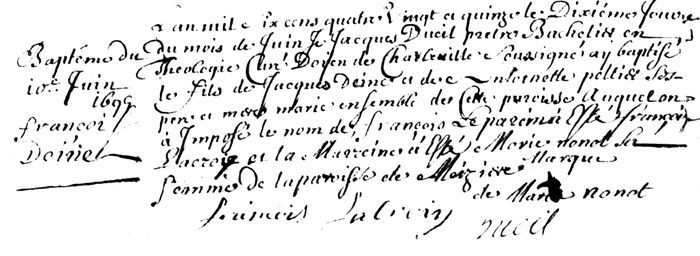 Baptême du
10e Juin
1695
françois
Doinet
L'an mil e six cens quatre vingt et quinze le Dixiéme Jour
du mois de Juin Je Jacques Dueil pretre Bachelier en
Theologie Curé Doyen de Charleville soussigné ay baptisé
le fils de Jacques Deine et de Antoinette peltier ses
pere et mere marie ensemble de Cette paroisse Auquel on
à Imposé le nom de françois Le parein à Esté françois
Lacroix et la Mareine à Esté Marie nonot sa
femme de la paroisse de Meziere
Marque
de Marie nonot
francois Lacroix
Dueil